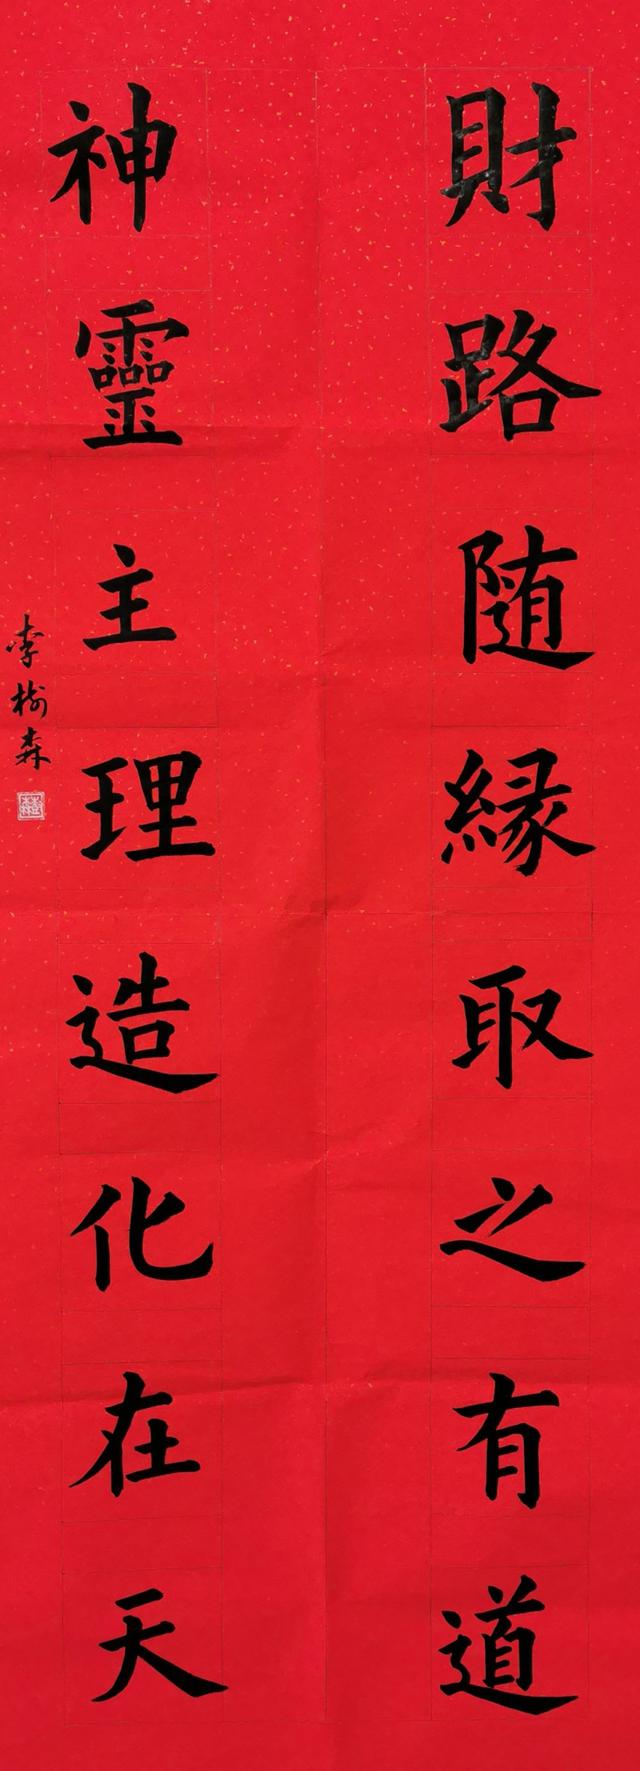 財路随縁取之有道
神靈主理造化在天
李樹森